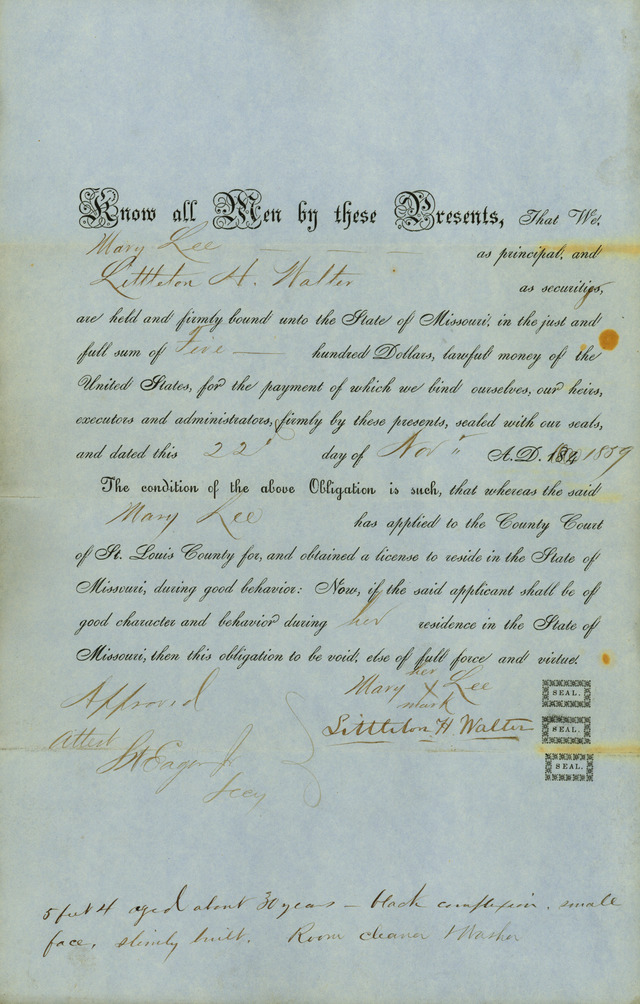 Know all Men by these Presents, That We,
Mary Lee as principal, and
Littleton H. Walter as securities,
are held and firmly bound unto the State of Missouri, in the just and
full sum of Five hundred Dollars, lawful money of the
United States, for the payment of which we bind ourselves, our heirs,
executors and administrators, firmly by these presents, sealed with our seals,
and dated this 22d day of Nov A.D. 184 1859
The condition of the above Obligation is such, that whereas the said
Mary Lee has applied to the County Court
of St. Louis County for, and obtained a license to reside in the State of
Missouri, during good behavior: Now, if the said applicant shall be of
good character and behavior during her residence in the State of
Missouri, then this obligation to be void, else of full force and virtue.
her
Mary X Lee SEAL.
mark
Approved
Littleton H Walter SEAL.
Attest
St Eager Jr SEAL.
Secy
5 feet 4 aged about 30 years - black complexion. small
face, slimly built. Room cleaner & Washer